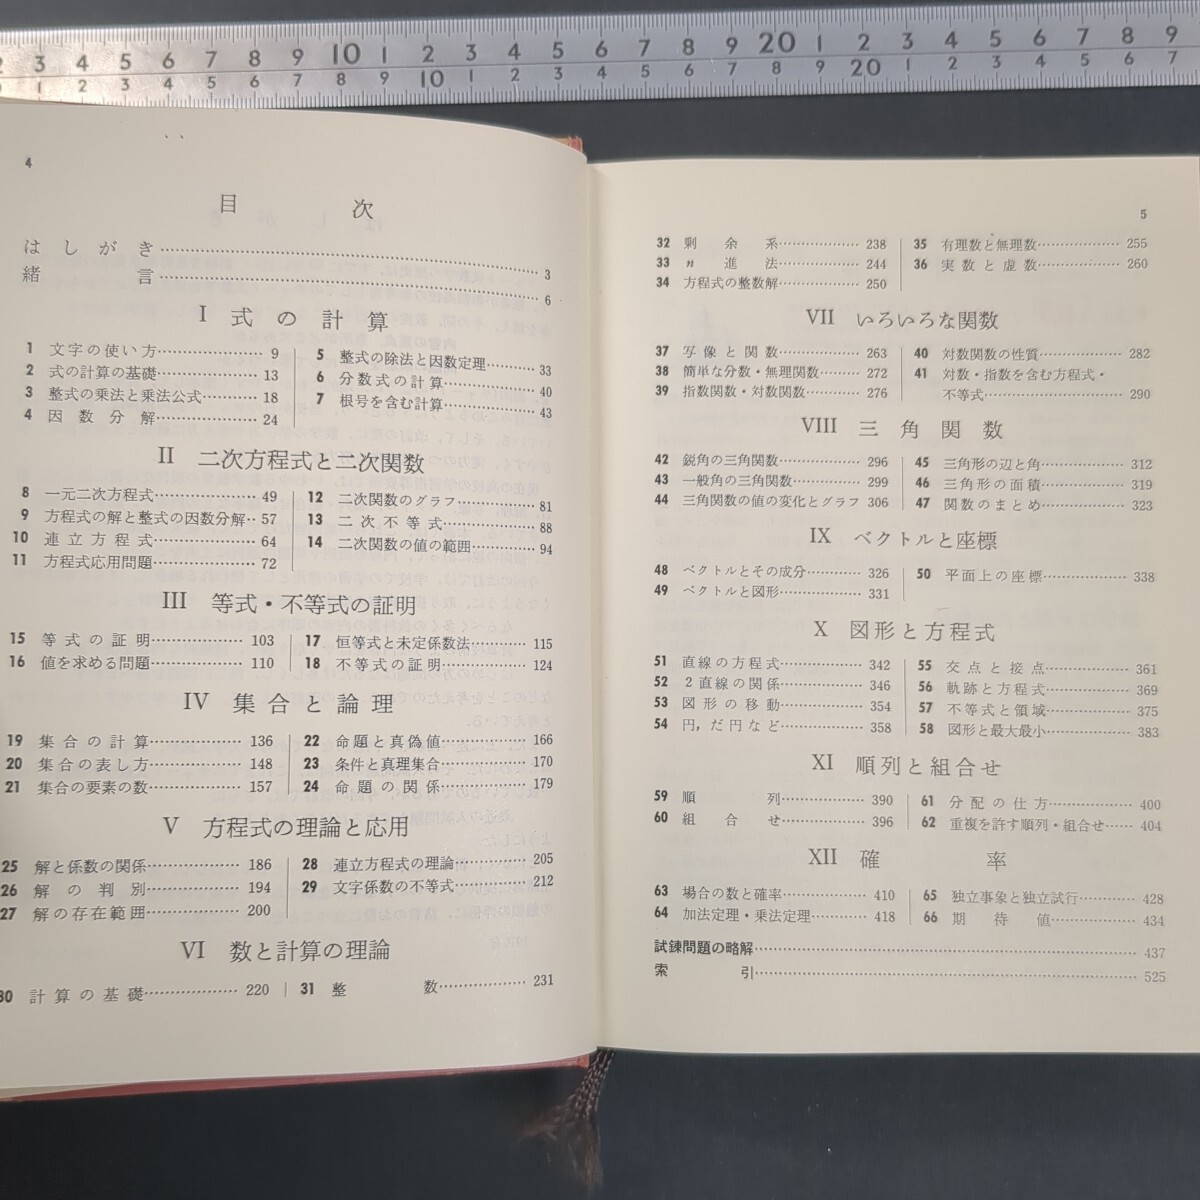 2 3 4 5 6 7 8 9 10 1 2 3 4 5 6 7 8 9 20 1 2 3 4 5 6 7 8 9
1 2 3 4 5 6 7 8 9 10 1 2 3 4 5 6 7 8 9 20 1 2 3 4 5 6 7
4
目次
はしがき 3
緒言 6
I 式の計算
1 文字の使い方 9
2 式の計算の基礎 13
3 整式の乗法と乗法公式 18
4 因数分解 24
5 整式の除法と因数定理 33
6 分数式の計算 40
7 根号を含む計算 43
II 二次方程式と二次関数
8 一元二次方程式 49
9 方程式の解と整式の因数分解 57
10 連立方程式 64
11 方程式応用問題 72
12 二次関数のグラフ 81
13 二次不等式 88
14 二次関数の値の範囲 94
III 等式・不等式の証明
15 等式の証明 103
16 値を求める問題 110
17 恒等式と未定係数法 115
18 不等式の証明 124
IV 集合と論理
19 集合の計算 136
20 集合の表し方 148
21 集合の要素の数 157
22 命題と真偽値 166
23 条件と真理集合 170
24 命題の関係 179
V 方程式の理論と応用
25 解と係数の関係 186
26 解の判別 194
27 解の存在範囲 200
28 連立方程式の理論 205
29 文字係数の不等式 212
VI 数と計算の理論
30 計算の基礎 220
31 整数 231
5
32 剰余系 238
33 n進法 244
34 方程式の整数解 250
35 有理数と無理数 255
36 実数と虚数 260
VII いろいろな関数
37 写像と関数 263
38 簡単な分数・無理関数 272
39 指数関数・対数関数 276
40 対数関数の性質 282
41 対数・指数を含む方程式・
不等式 290
VIII 三角関数
42 鋭角の三角関数 296
43 一般角の三角関数 299
44 三角関数の値の変化とグラフ 306
45 三角形の辺と角 312
46 三角形の面積 319
47 関数のまとめ 323
IX ベクトルと座標
48 ベクトルとその成分 326
49 ベクトルと図形 331
50 平面上の座標 338
X 図形と方程式
51 直線の方程式 342
52 2直線の関係 346
53 図形の移動 354
54 円,だ円など 358
55 交点と接点 361
56 軌跡と方程式 369
57 不等式と領域 375
58 図形と最大最小 383
XI 順列と組合せ
59 順列 390
60 組合せ 396
61 分配の仕方 400
62 重複を許す順列・組合せ 404
XII 確率
63 場合の数と確率 410
64 加法定理・乗法定理 418
65 独立事象と独立試行 428
66 期待値 434
試錬問題の略解 437
索引 525